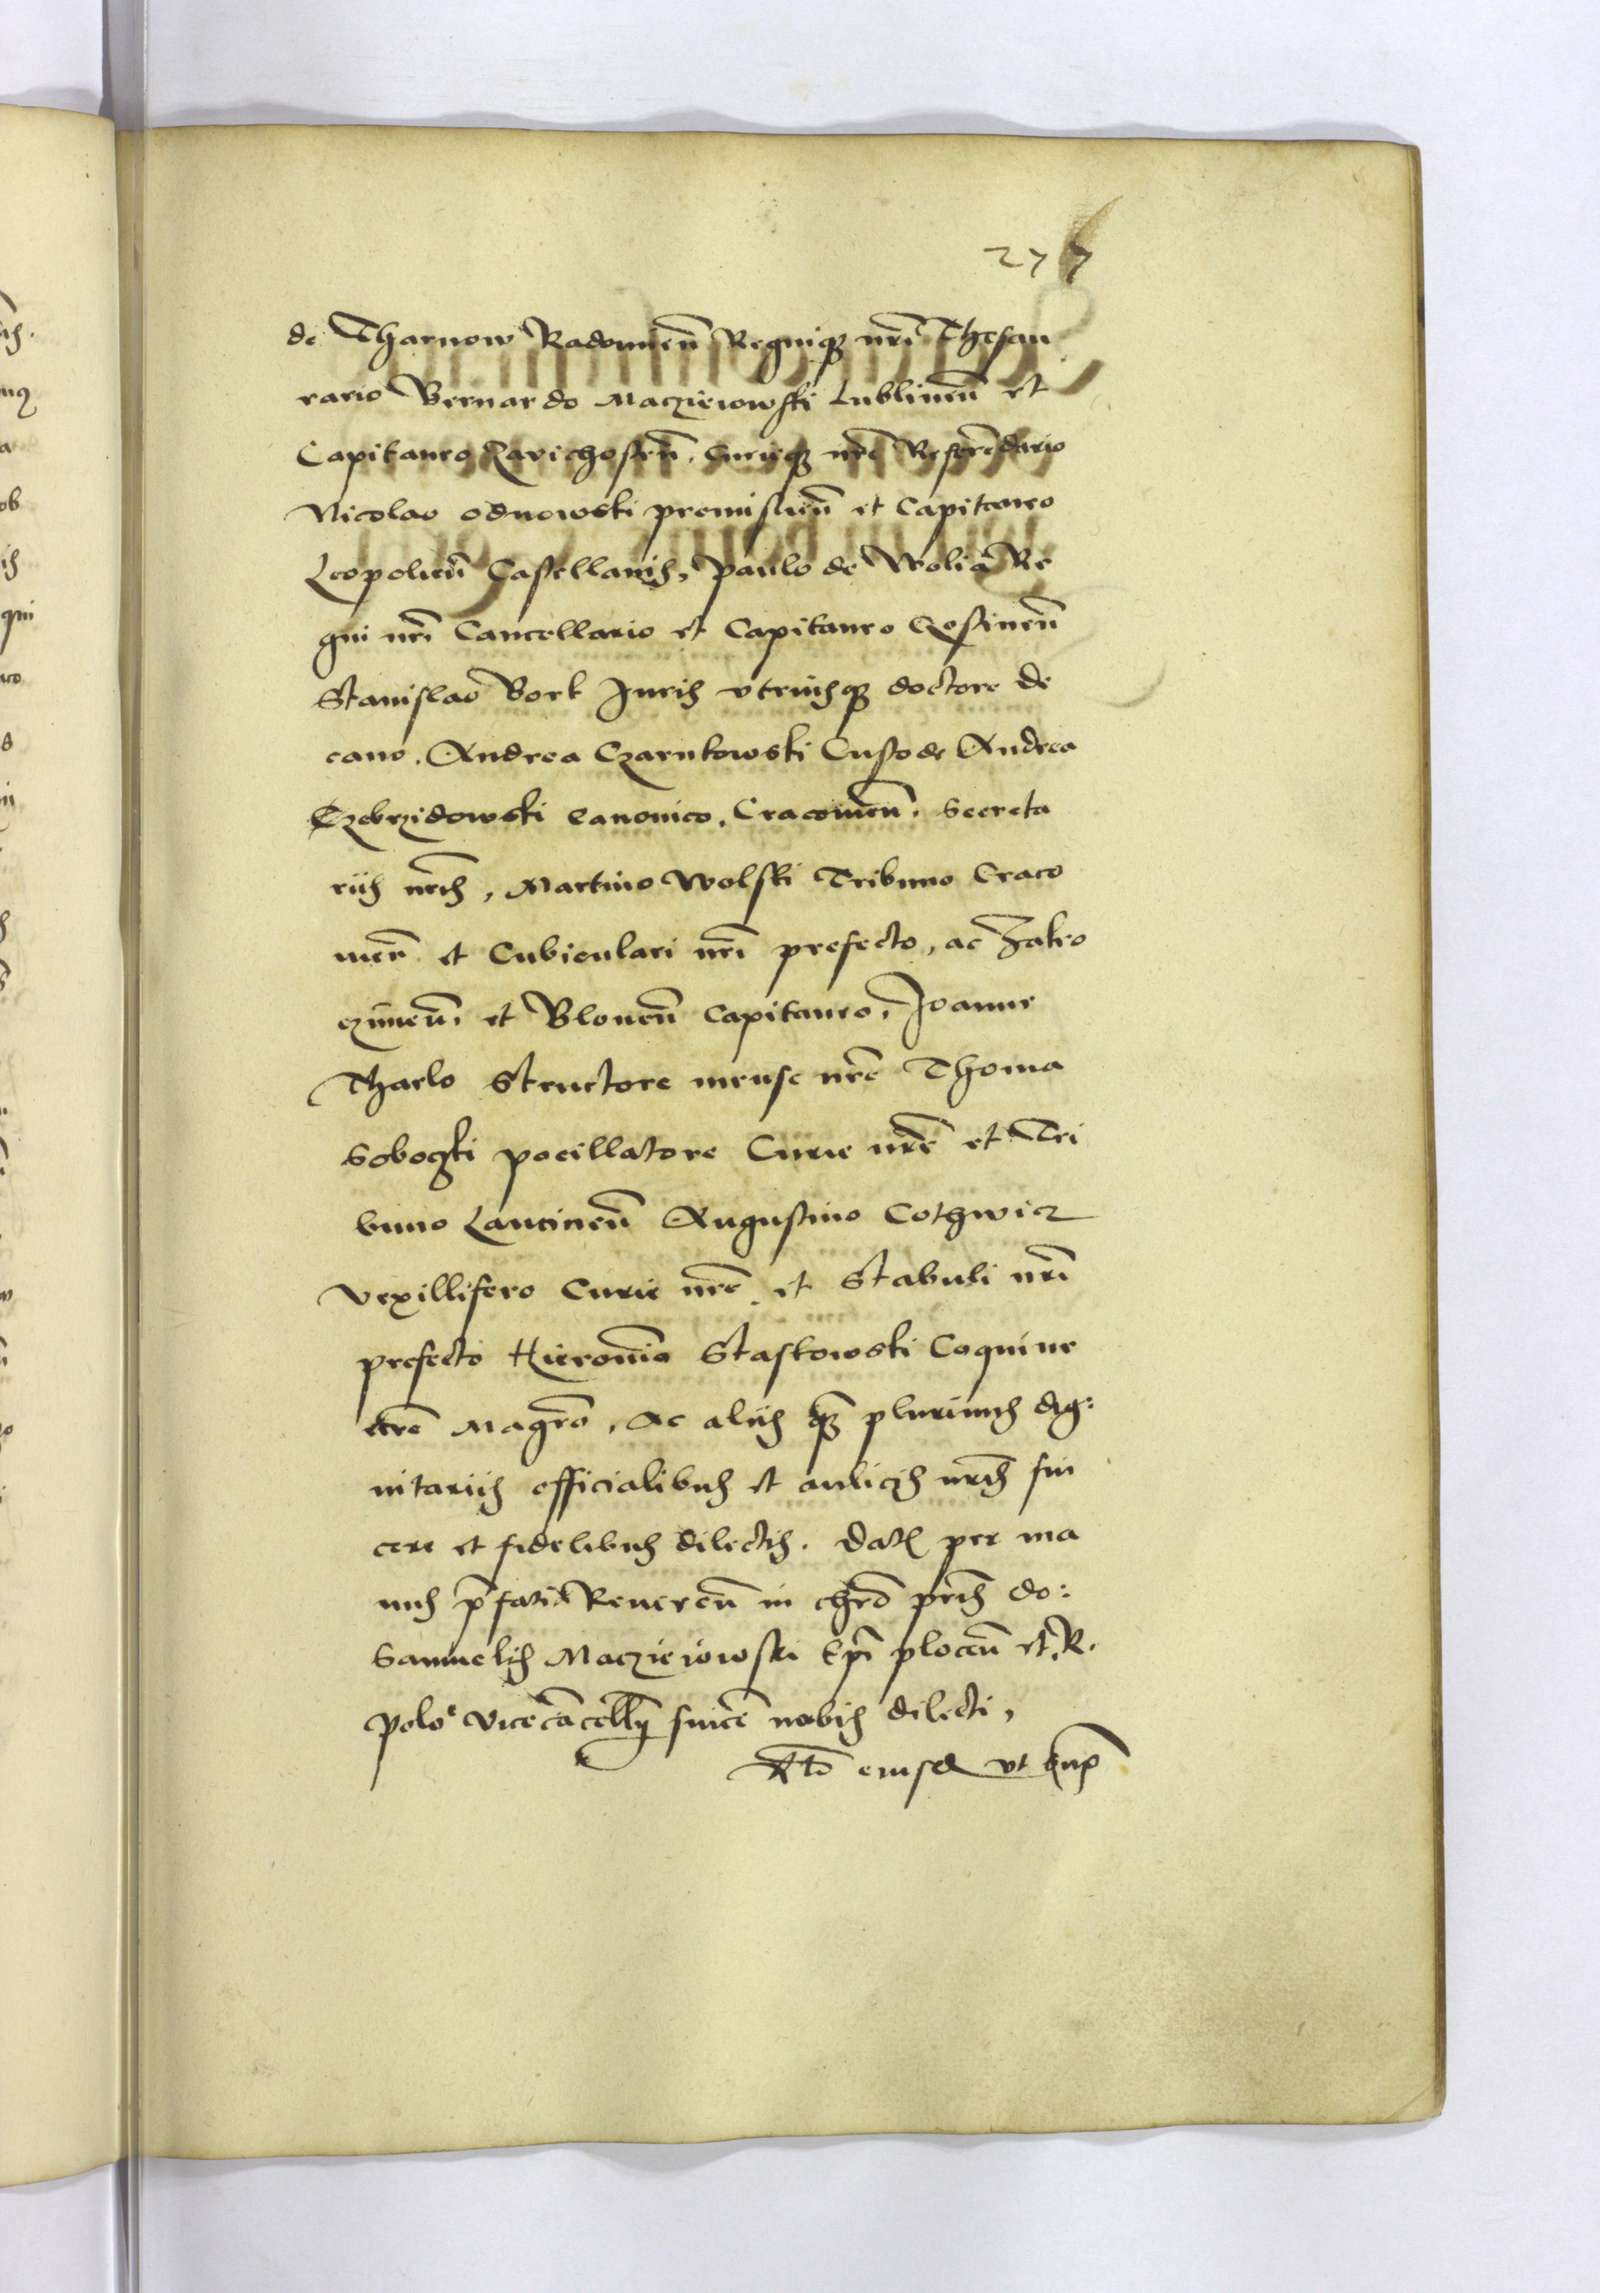 277
de Tharnow Radomien̄ Regniqꝫ nr̄i Thesau
rario Bernardo Maczieiowski Lublinen̄ et
Capitaneo Zavichosten̄. Curieqꝫ nr̄e Referēdario
Nicolao odnowski premislien̄ et Capitaneo
Leopolien̄ Castellanis, Paulo de Wolia Re
gni nr̄i Cancellario et Capitaneo Gostinen̄
Stanislao Bork Juris vtriusqꝫ doctore de
cano. Andrea Czarnkowski Custode Andrea
Czebrzidowski Canonico. Cracouien̄. Secreta
riis nr̄is, Martino Wolski Tribuno Craco
uien̄ et Cubiculari nr̄i prefecto, ac Zakro
czimen̄. et Blonen̄ Capitaneo, Joanne
Tharlo Structore mense nr̄e Thoma
Soboczki pocillatore Curie nr̄e et Tri
buno Lancinen̄ Augustino Cothwicz
Vexillifero Curie nr̄e et Stabuli nr̄i
prefecto Hieronimo Staskowski Coquine
nr̄e Magr̄o. Ac aliis qꝫ plurimis dig:
nitariis officialibus et aulicis nr̄is sin
cere et fidelibus dilectis. Dat̄ per ma
nus p̄fati Reueren̄ in chr̄o pr̄is do:
Samuelis Maczieiowski Ep̄i plocen̄ et R.
Polo: vicecācellarij sincē nobis dilecti,
R̄tō eiusd̄ vt sup̄